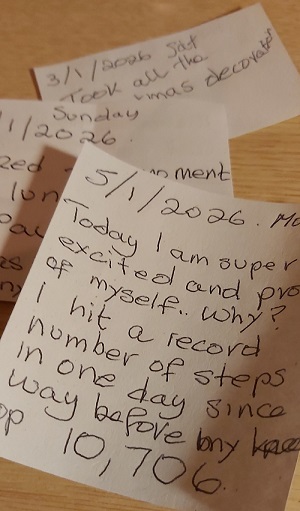 3/1/2026 Sat
Took all the
xmas decorat
Sunday
1/2026.
zed ment
lun
5/1/2026. Mo
Today I am super
excited and pro
of myself.. Why?
I hit a record
number of steps
in one day since
way before my knee
op 10,706.